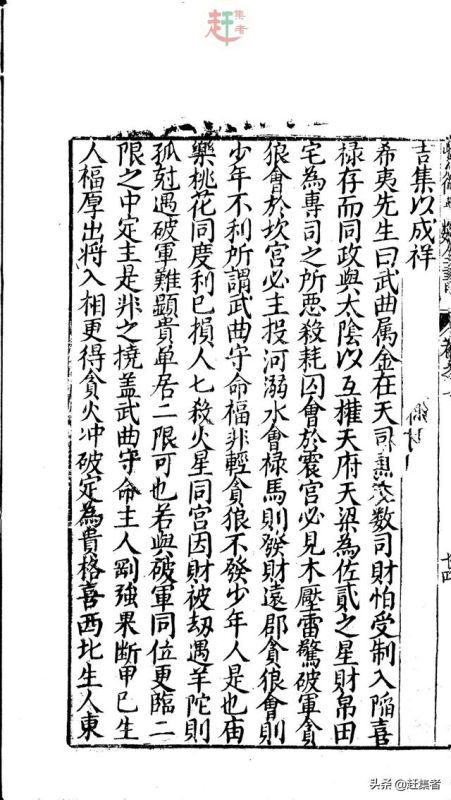 集
赶
者
吉集以成祥
希夷先生曰武曲属金在天司壽在数司財怕受制入陥喜
禄存而同政與太陰以互權天府天梁為佐貳之星財帛田
宅為專司之所惡殺耗囚會於震宫必見木壓雷驚破軍貪
狼會於坎宫必主投河溺水會禄馬則發財遠郡貪狼會則
少年不利所謂武曲守命福非輕貪狼不發少年人是也庙
樂桃花同度利已損人七殺火星同宫因財被劫遇羊陀則
孤尅遇破軍難顕貴单居二限可也若與破軍同位更臨二
限之中定主是非之撓盖武曲守命主人剛強果断甲已生
人福厚出將入相更得貪火冲破定為貴格喜西北生人東
十四
头条 @赶集者